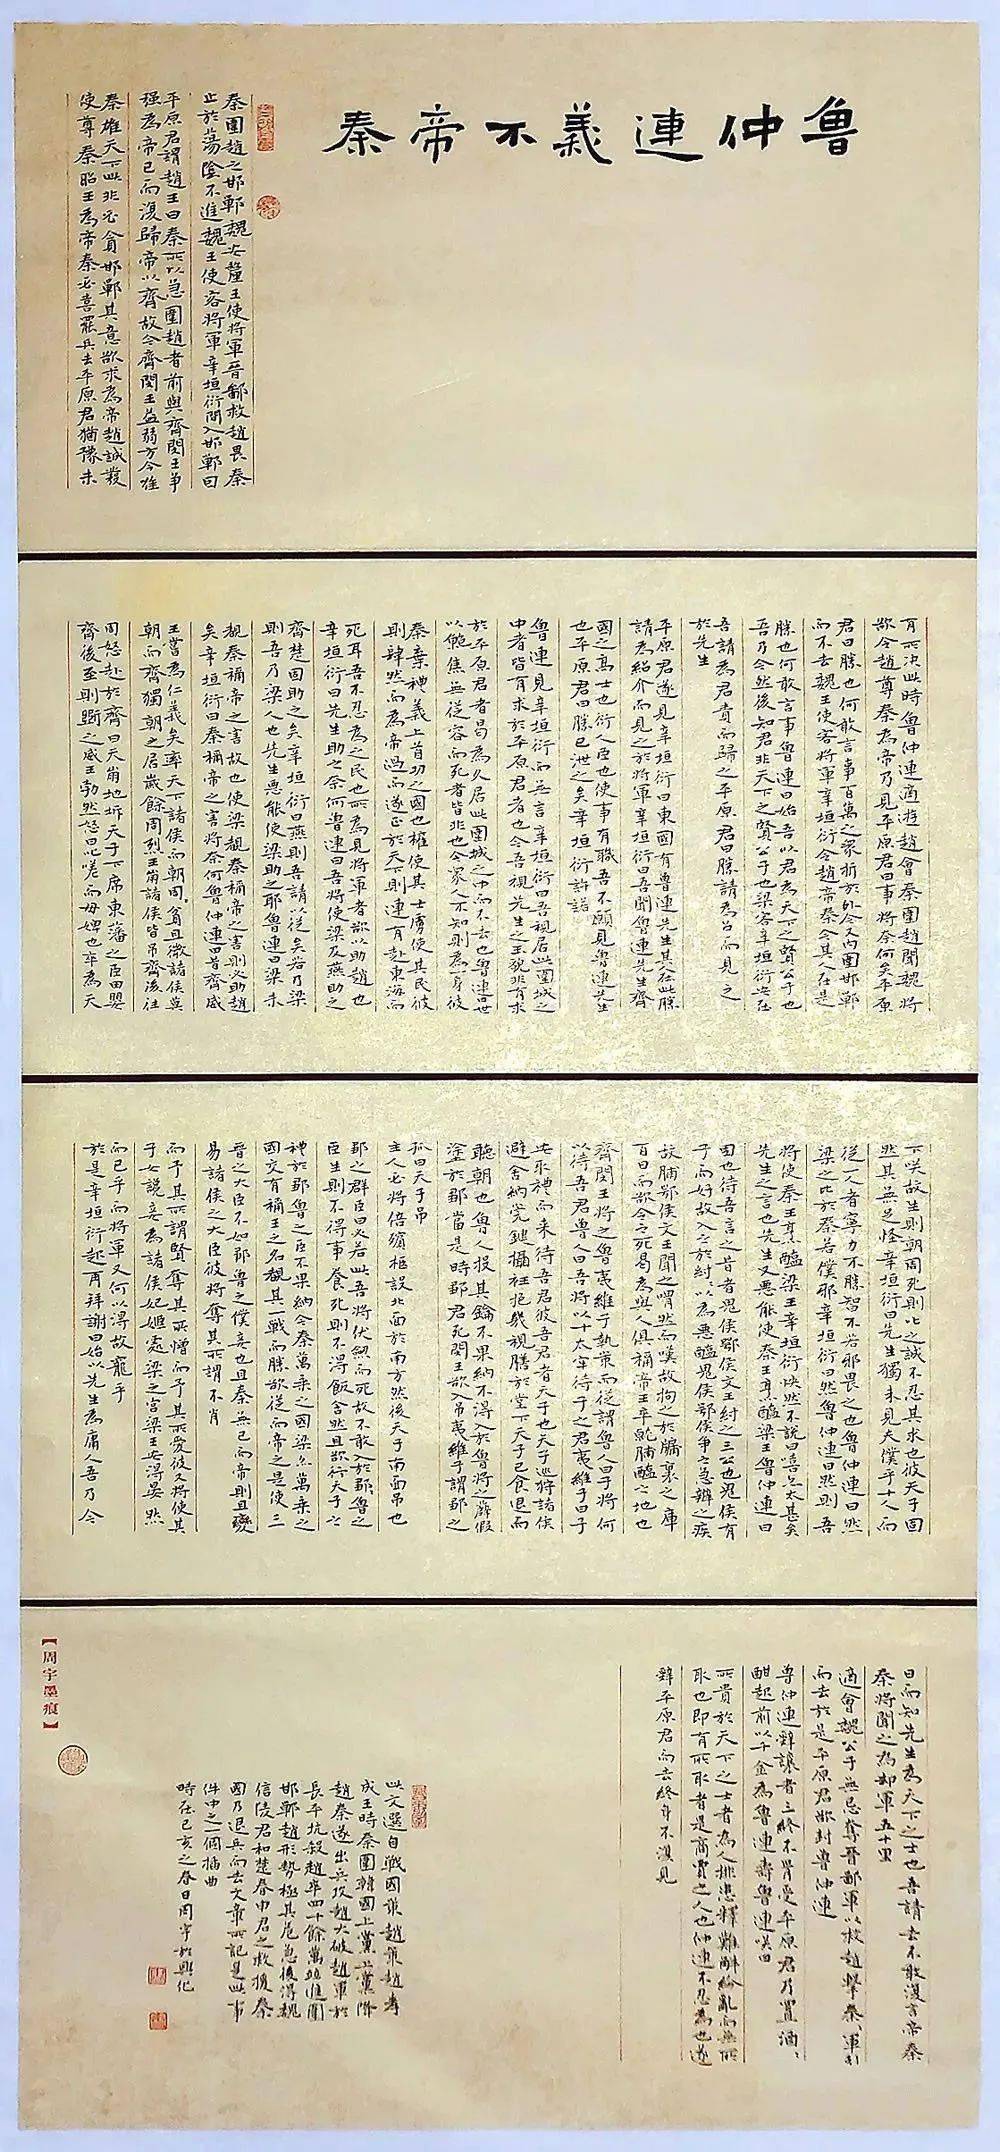 魯仲連義不帝秦
秦圍趙之邯鄲魏安釐王使將軍晉鄙救趙畏秦
止於蕩陰不進魏王使客將軍辛垣衍間入邯鄲曰
平原君謂趙王曰秦所以急圍趙者前與齊閔王爭
强為帝已而復歸帝以齊故今齊閔王益弱方今唯
秦雄天下此非必貪邯鄲其意欲求為帝趙誠發
使尊秦昭王為帝秦必喜罷兵去平原君猶豫未
有所決此時魯仲連適遊趙會秦圍趙聞魏將
欲令趙尊秦為帝乃見平原君曰事將奈何矣平原
君曰勝也何敢言事百萬之衆折於外今又內圍邯鄲
而不去魏王使客將軍辛垣衍令趙帝秦今其人在是
勝也何敢言事魯連曰始吾以君為天下之賢公子也
吾乃今然後知君非天下之賢公子也梁客辛垣衍安在
吾請為君責而歸之平原君曰勝請為召而見之
於先生
平原君遂見辛垣衍曰東國有魯連先生其人在此勝
請為紹介而見之於將軍辛垣衍曰吾聞魯連先生齊
國之高士也衍人臣也使事有職吾不願見魯連先生
也平原君曰勝已泄之矣辛垣衍許諾
魯連見辛垣衍而無言辛垣衍曰吾視居此圍城之
中者皆有求於平原君者也今吾視先生之玉貌非有求
於平原君者曷為久居此圍城之中而不去也魯連曰世
以鮑焦無從容而死者皆非也今衆人不知則為一身彼
秦棄禮義上首功之國也權使其士虜使其民彼
則肆然而為帝過而遂正於天下則連有赴東海而
死耳吾不忍為之民也所為見將軍者欲以助趙也
辛垣衍曰先生助之奈何魯連曰吾將使梁及燕助之
齊楚固助之矣辛垣衍曰燕則吾請以從矣若乃梁
則吾乃梁人也先生惡能使梁助之耶魯連曰梁未
覩秦稱帝之害故也使梁覩秦稱帝之害則必助趙
矣辛垣衍曰秦稱帝之害將奈何魯仲連曰昔齊威
王嘗為仁義矣率天下諸侯而朝周貧且微諸侯莫
朝而齊獨朝之居歲餘周烈王崩諸侯皆吊齊後往
周怒赴於齊曰天崩地坼天子下席東藩之臣田嬰
齊後至則斮之威王勃然怒曰叱嗟而母婢也卒為天
下笑故生則朝周死則叱之誠不忍其求也彼天子固
然其無足怪辛垣衍曰先生獨未見夫僕乎十人而
從一人者寧力不勝智不若邪畏之也魯仲連曰然
梁之比於秦若僕邪辛垣衍曰然魯仲連曰然則吾
將使秦王烹醢梁王辛垣衍怏然不說曰嘻亦太甚矣
先生之言也先生又惡能使秦王烹醢梁王魯仲連曰
固也待吾言之昔者鬼侯鄂侯文王紂之三公也鬼侯有
子而好故入之於紂紂以為惡醢鬼侯鄂侯爭之急辨之疾
故脯鄂侯文王聞之喟然而嘆故拘之於牖里之庫
百日而欲令之死曷為與人俱稱帝王卒就脯醢之地也
齊閔王將之魯夷維子執策而從謂魯人曰子將何
以待吾君魯人曰吾將以十太牢待子之君夷維子曰子
安取禮而來待吾君彼吾君者天子也天子巡狩諸侯
避舍納筦鍵攝衽抱几視膳於堂下天子已食退而
聽朝也魯人投其鑰不果納不得入於魯將之薛假
塗於鄒當是時鄒君死閔王欲入吊夷維子謂鄒之
孤曰天子吊
主人必將倍殯柩設北面於南方然後天子南面吊也
鄒之群臣曰必若此吾將伏劍而死故不敢入於鄒魯之
臣生則不得事養死則不得飯含然且欲行天子之
禮於鄒魯之臣不果納今秦萬乘之國梁亦萬乘之
國交有稱王之名覩其一戰而勝欲從而帝之是使三
晉之大臣不如鄒魯之僕妾也且秦無已而帝則且變
易諸侯之大臣彼將奪其所謂不肖
而予其所謂賢奪其所憎而予其所愛彼又將使其
子女讒妾為諸侯妃姬處梁之宮梁王安得晏然
而已乎而將軍又何以得故寵乎
於是辛垣衍起再拜謝曰始以先生為庸人吾乃今
日而知先生為天下之士也吾請去不敢復言帝秦
秦將聞之為却軍五十里
適會魏公子無忌奪晉鄙軍以救趙擊秦秦軍引
而去於是平原君欲封魯仲連
魯仲連辭讓者三終不肯受平原君乃置酒酒
酣起前以千金為魯連壽魯連笑曰
所貴於天下之士者為人排患釋難解紛亂而無所
取也即有所取者是商賈之人也仲連不忍為也遂
辭平原君而去終身不復見
此文選自戰國策趙策趙孝
成王時秦圍韓國上黨上黨降
趙秦遂出兵攻趙大破趙軍於
長平坑殺趙卒四十餘萬並進圍
邯鄲趙形勢極其危急後得魏
信陵君和楚春申君之救援秦
國乃退兵而去文章所記是此事
件中之一個插曲
時在己亥之春日周宇於興化
【周宇墨痕】